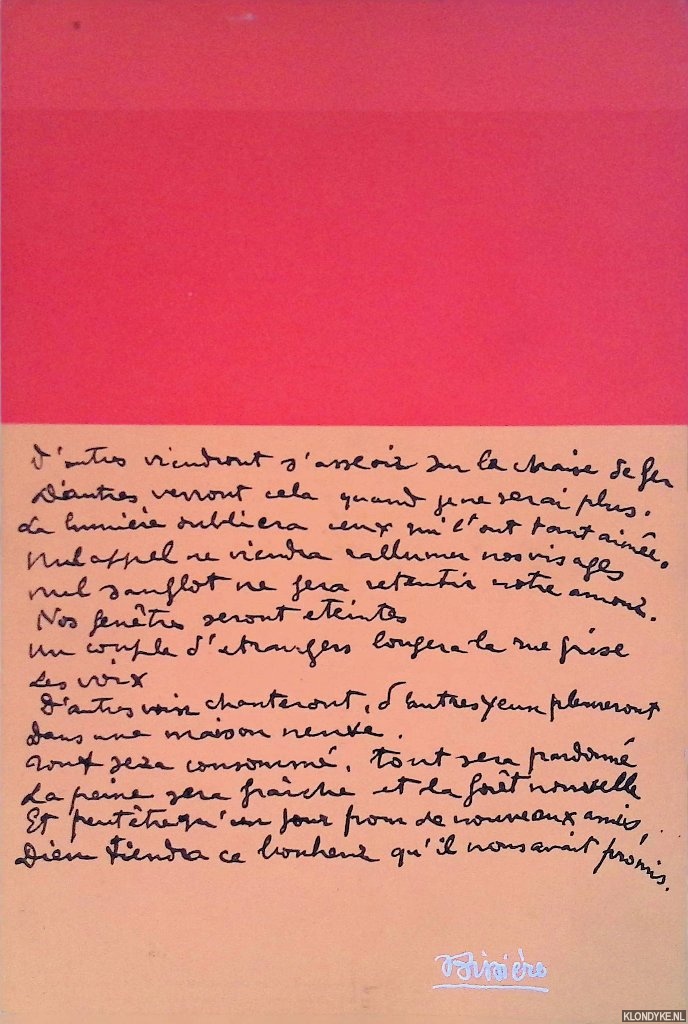 D'autres viendront s'asseoir sur la chaise de fer
D'autres verront cela quand je ne serai plus.
La lumière oubliera ceux qui l'ont tant aimée.
Nul appel ne viendra rallumer nos visages
nul sanglot ne fera retentir notre amour.
Nos fenêtres seront eteintes
un couple d'etrangers longera la rue grise
Les voix
D'autres voix chanteront, d'autres yeux pleureront
Dans une maison neuve.
Tout sera consommé, tout sera pardonné
La peine sera fraîche et la forêt nouvelle
Et peut être qu'un jour pour de nouveaux amis,
Dieu tiendra ce bonheur qu'il nous avait promis.
KLONDYKE.NL